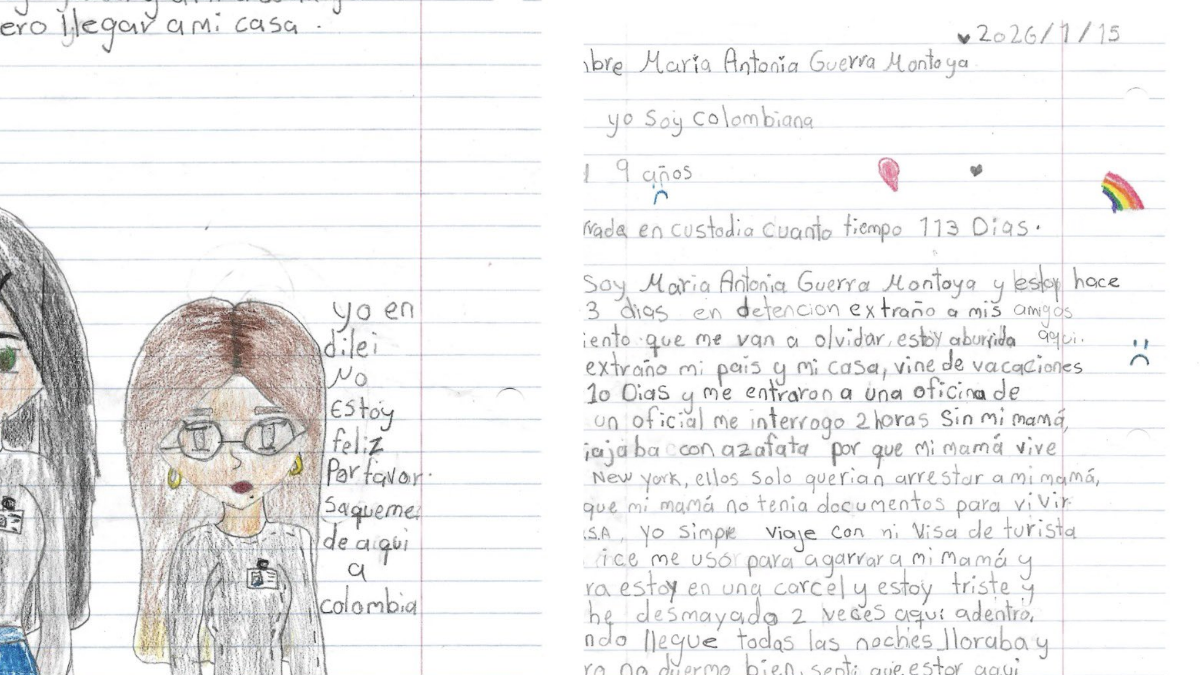 ero llegar a mi casa.
yo en
dilei
No
Estoy
feliz
Por favor.
saqueme
de aqui
a
colombia
2026/1/15
bre Maria Antonia Guerra Montoya
yo Soy colombiana
9 años
en custodia cuanto tiempo 113 Dias.
Soy Maria Antonia Guerra Montoya y estoy hace
3 dias en detencion extraño a mis amigos
iento que me van a olvidar, estoy aburrida aqui.
extraño mi pais y mi casa, vine de vacaciones
10 Dias y me entraron a una oficina de
un oficial me interrogo 2 horas Sin mi mamá,
iajaba con azafata por que mi mamá vive
New york, ellos solo querian arrestar a mi mamá,
que mi mamá no tenia documentos para vivir
.S.A, Yo simpre viaje con mi Visa de turista
ice me uso para agarrar a mi mamá y
ra estoy en una carcel y estoy triste y
he desmayado 2 veces aqui adentro,
ndo llegue todas las noches lloraba y
ra no duermo bien, senti que estar aqui